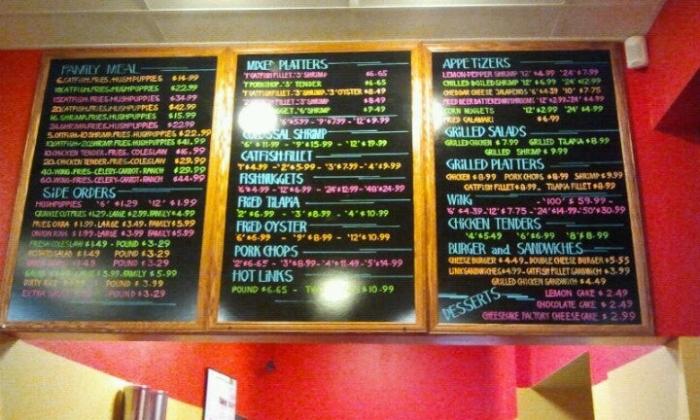 FAMILY MEAL
6.CATFISH,FRIES,HUSHPUPPIES $14.99
10.CATFISH,FRIES,HUSHPUPPIES $22.99
15.CATFISH,FRIES,HUSHPUPPIES $34.99
20.CATFISH,FRIES,HUSHPUPPIES $42.99
16 SHRIMP,FRIES,HUSHPUPPIES $15.99
24 SHRIMP,FRIES,HUSHPUPPIES $22.99
HUSHPUPPIES $22.99
SHRIMP,FRIES,HUSHPUPPIES $41.99
10.CHICKEN TENDER,FRIES,COLESLAW $16.99
20.CHICKEN TENDER,FRIES,COLESLAW $29.99
40.WING,FRIES,CELERY,CARROT,RANCH $29.99
60.WING,FRIES,CELERY,CARROT,RANCH $44.99
SIDE ORDERS
HUSHPUPPIES "6" $1.29 "12" $1.99
FRIES $1.29-LARGE $2.99-FAMILY $4.99
FRIED OKRA $1.99-LARGE $3.49-FAMILY $5.99
ONION RING $1.99-LARGE $3.99-FAMILY $5.99
FRESH COLESLAW $1.49 - POUND $3.29
POTATO SALAD $1.49 - POUND $3.29
$1.49 - POUND $3.29
LARGE $3.29-FAMILY $5.99
DIRTY RICE - POUND $3.99
EXTRA - POUND $3.29
MIXED PLATTERS
1"CATFISH FILLET,"3"SHRIMP $6.65
1"PORKCHOP,"3" TENDER $6.65
1"CATFISH FILLET,"3"SHRIMP,"3"OYSTER $8.49
2"CATFISH FILLET,"3"SHRIMP $8.49
NUGGET,"6"SHRIMP $7.49
- "9"$7.99 - "12"$9.99
COLOSSAL SHRIMP
"6" $11.99 - "9"$15.99 - "12"$19.99
CATFISH FILLET
"2"$5.99 - "3"$7.99 - "4"$9.99
FISH NUGGETS
"6"$4.99 - "12"$6.99 - "24"$12.99 - "48"$24.99
FRIED TILAPIA
"2" $6.99 - "3" $8.99 - "4" $10.99
FRIED OYSTER
"6" $6.99 - "9" $8.99 - "12" $10.99
PORK CHOPS
"2"$6.65 - "3"$8.99 - "4"$11.49 - "5"$14.99
HOT LINKS
POUND $6.65 - $10.99
APPETIZERS
LEMON-PEPPER SHRIMP "12" $4.99 "24" $7.99
CHILLED BOILED SHRIMP "12" $5.99 "24" $9.99
CHEDDAR CHEESE JALAPENOS "6" $4.39 "10" $7.75
FRIED BEER BATTERED MUSHROOMS "12"$2.99 "24" $4.99
CORN NUGGETS "12" $2.99 "24" $4.99
FRIED CALAMARI $6.99
GRILLED SALADS
GRILLED CHICKEN $7.99 GRILLED TILAPIA $8.99
GRILLED SHRIMP $9.99
GRILLED PLATTERS
CHICKEN $8.99 PORK CHOPS $8.99 SHRIMP $9.99
CATFISH FILLET $8.99 TILAPIA FILLET $8.99
WING - "100" $59.99 -
"6" $4.39-"12"$7.75 - "24"$14.99-"50"$30.99
CHICKEN TENDERS
"4"$5.49 "6"$6.99 "8"$8.99
BURGER and SANDWICHES
CHEESE BURGER $4.49, DOUBLE CHEESE BURGER $5.55
LINK SANDWICHES $4.99, CATFISH FILLET SANDWICH $3.99
GRILLED CHICKEN SANDWICH $4.49
DESSERTS
LEMON CAKE $2.49
CHOCOLATE CAKE $2.49
CHEESECAKE FACTORY CHEESE CAKE $2.99